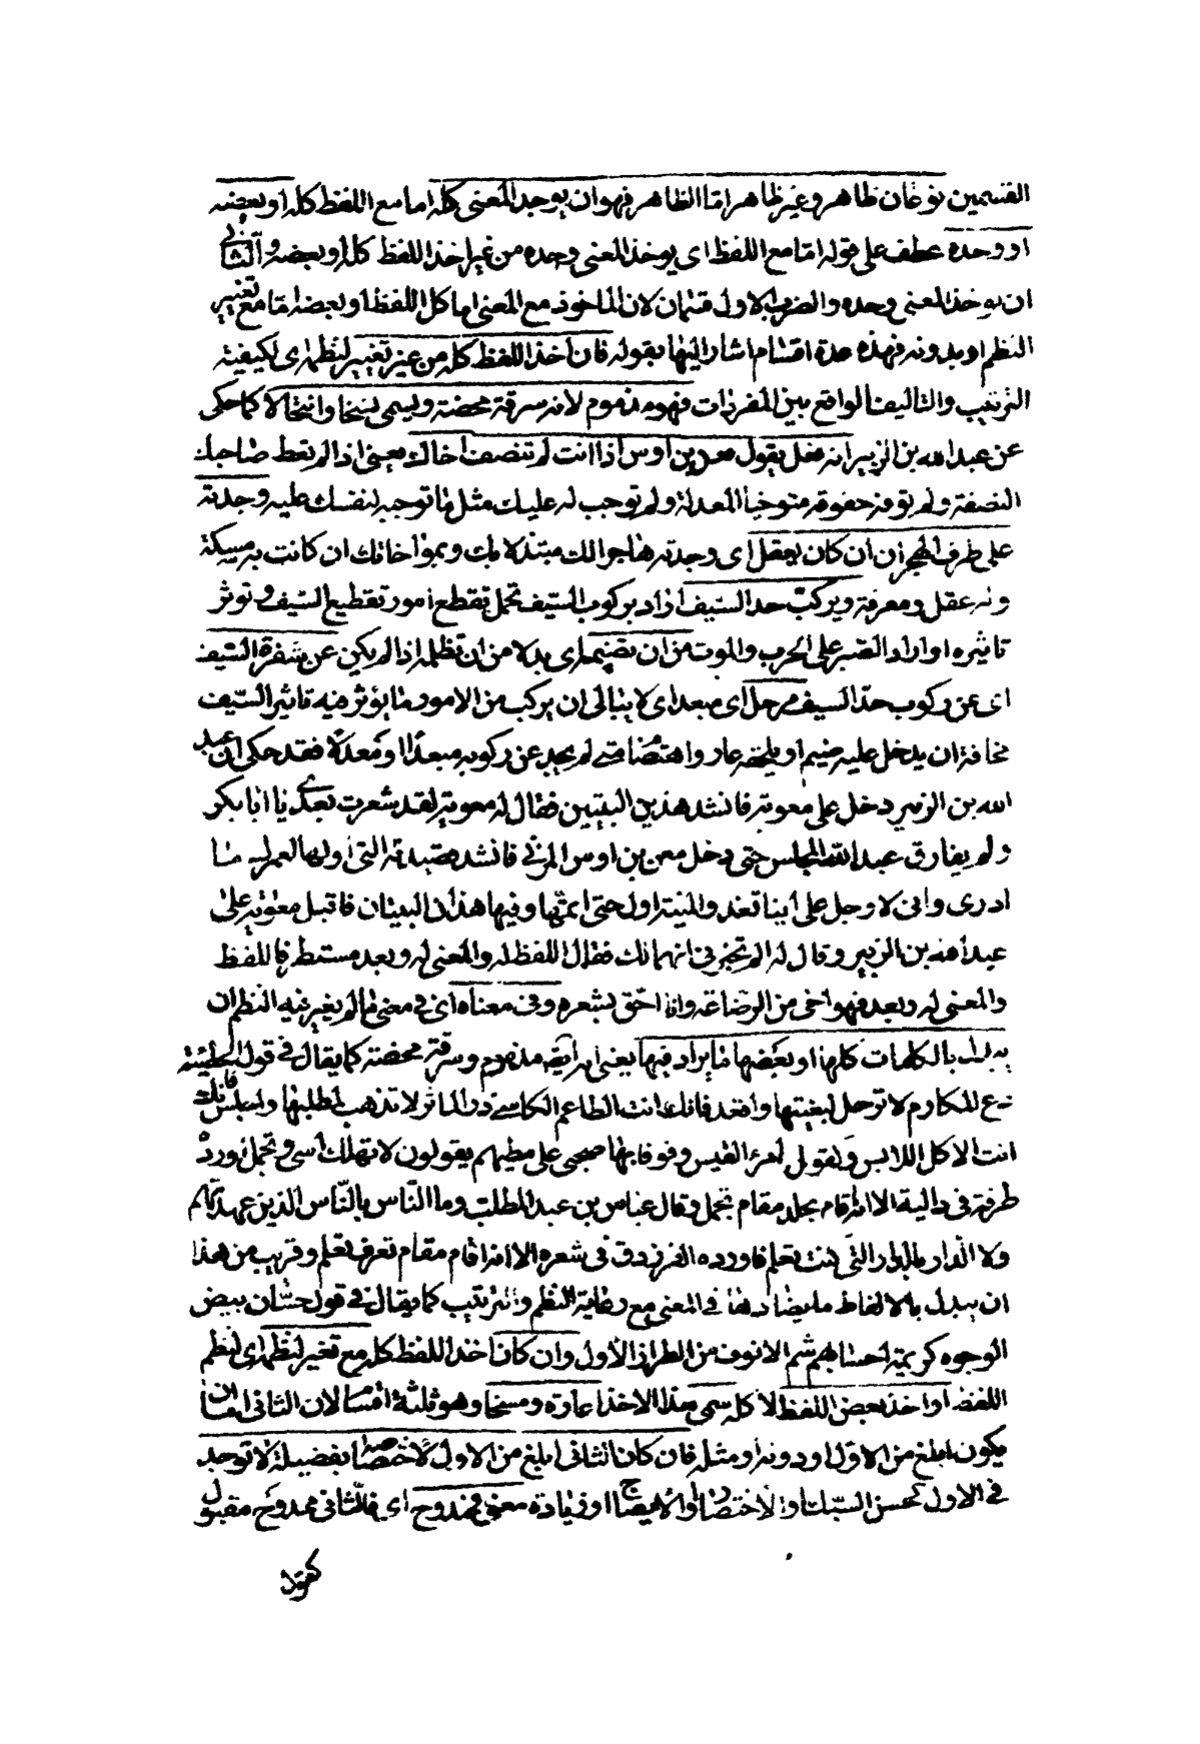 القسمين نوعان ظاهر وغير ظاهر اما الظاهر فهو ان يوخذ المعنى كله اما مع اللفظ كله او بعضه
او وحده عطف على قوله اما مع اللفظ اى يوخذ المعنى وحده من غير اخذ اللفظ كله او بعضه والثانى
ان يوخذ المعنى وحده والضرب الاول قسمان لان الماخوذ مع المعنى اما كل اللفظ او بعضه اما مع تغيير
النظم او بدونه فهذه عدة اقسام اشار اليها بقوله فان اخذ اللفظ كله من غير تغيير لنظمه اى لكيفية
الترتيب والتاليف الواقع بين المفردات فهو مذموم لانه سرقة محضة ويسمى نسخا وانتحالا كما حكى
عن عبد الله بن الزبير انه فعل بقول معن بن اوس اذا انت لم تنصف اخاك يعنى اذا لم تعط صاحبك
النصفة ولم توفه حقوقه متوخيا المعدلة ولم توجب له عليك مثل ما توجبه لنفسك عليه وجدته
على طرف الهجران ان كان يعقل اى وجدته هاجرا لك مبتذلا بك وبمواخاتك ان كانت به مسكة
وله عقل ومعرفة ويركب حد السيف اراد بركوب السيف تحمل تقطع امور تقطيع السيف وتوثر
تاثيره او اراد الصبر على الحرب والموت من ان تضيمه اى بدلا من ان تظلمه اذا لم يكن عن شفرة السيف
اى عن ركوب حد السيف مزحل اى مبعد اى لا يبالى ان يركب من الامور ما يؤثر فيه تاثير السيف
مخافة ان يدخل عليه ضيم او يلحقه عار واهتضام متى لم يجد عن ركوبه مبعدا او معدلا فقد حكى ان عبد
الله بن الزبير دخل على معوية فانشد هذين البيتين فقال له معوية لقد شعرت بعدى يا ابا بكر
ولم يفارق عبد الله المجلس حتى دخل معن بن اوس المزنى فانشد قصيدته التى اولها لعمرك ما
ادرى وانى لاوجل على اينا تعدو المنية اول حتى اتمها وفيها هذان البيتان فاقبل معوية على
عبد الله بن الزبير وقال له الم تخبرنى انهما لك فقال اللفظ له والمعنى له وبعد فاللفظ
والمعنى له وبعد فهو اخى من الرضاعة وانا احق بشعره وفى معناه اى فى معنى ما لم يغير فيه النظم ان
يبدل بالكلمات كلها او بعضها ما يرادفها يعنى انه ايضا مذموم وسرقة محضة كما يقال فى قول الحطيئة
دع المكارم لا ترحل لبغيتها واقعد فانك انت الطاعم الكاسى ذر الماثر لا تذهب لمطلبها واجلس فانك
انت الاكل اللابس وكقول امرء القيس وقوفا بها صحبى على مطيهم يقولون لا تهلك اسى وتجمل اورده
طرفة فى دالية الا انه اقام تجلد مقام تجمل وقال عباس بن عبد المطلب وما الناس بالناس الذين عهدتهم
ولا الدار بالدار التى كنت تعلم فاورده الفرزدق فى شعره الا انه اقام مقام تعرف تعلم وقريب من هذا
ان يبدل بالالفاظ ما يضادها فى المعنى مع رعاية النظم والترتيب كما يقال فى قول حسان بيض
الوجوه كريمة احسابهم شم الانوف من الطراز الاول وان كان اخذ اللفظ كله مع تغيير لنظمه اى لنظم
اللفظ او اخذ بعض اللفظ لا كله سمى هذا الاخذ اغارة ومسخا وهو ثلثة اقسام لان الثانى اما ان
يكون ابلغ من الاول او دونه او مثله فان كان الثانى ابلغ من الاول لاختصاصه بفضيلة لا توجد
فى الاول كحسن السبك او الاختصار او الايضاح او زيادة معنى فممدوح اى فالثانى ممدوح مقبول
كقول